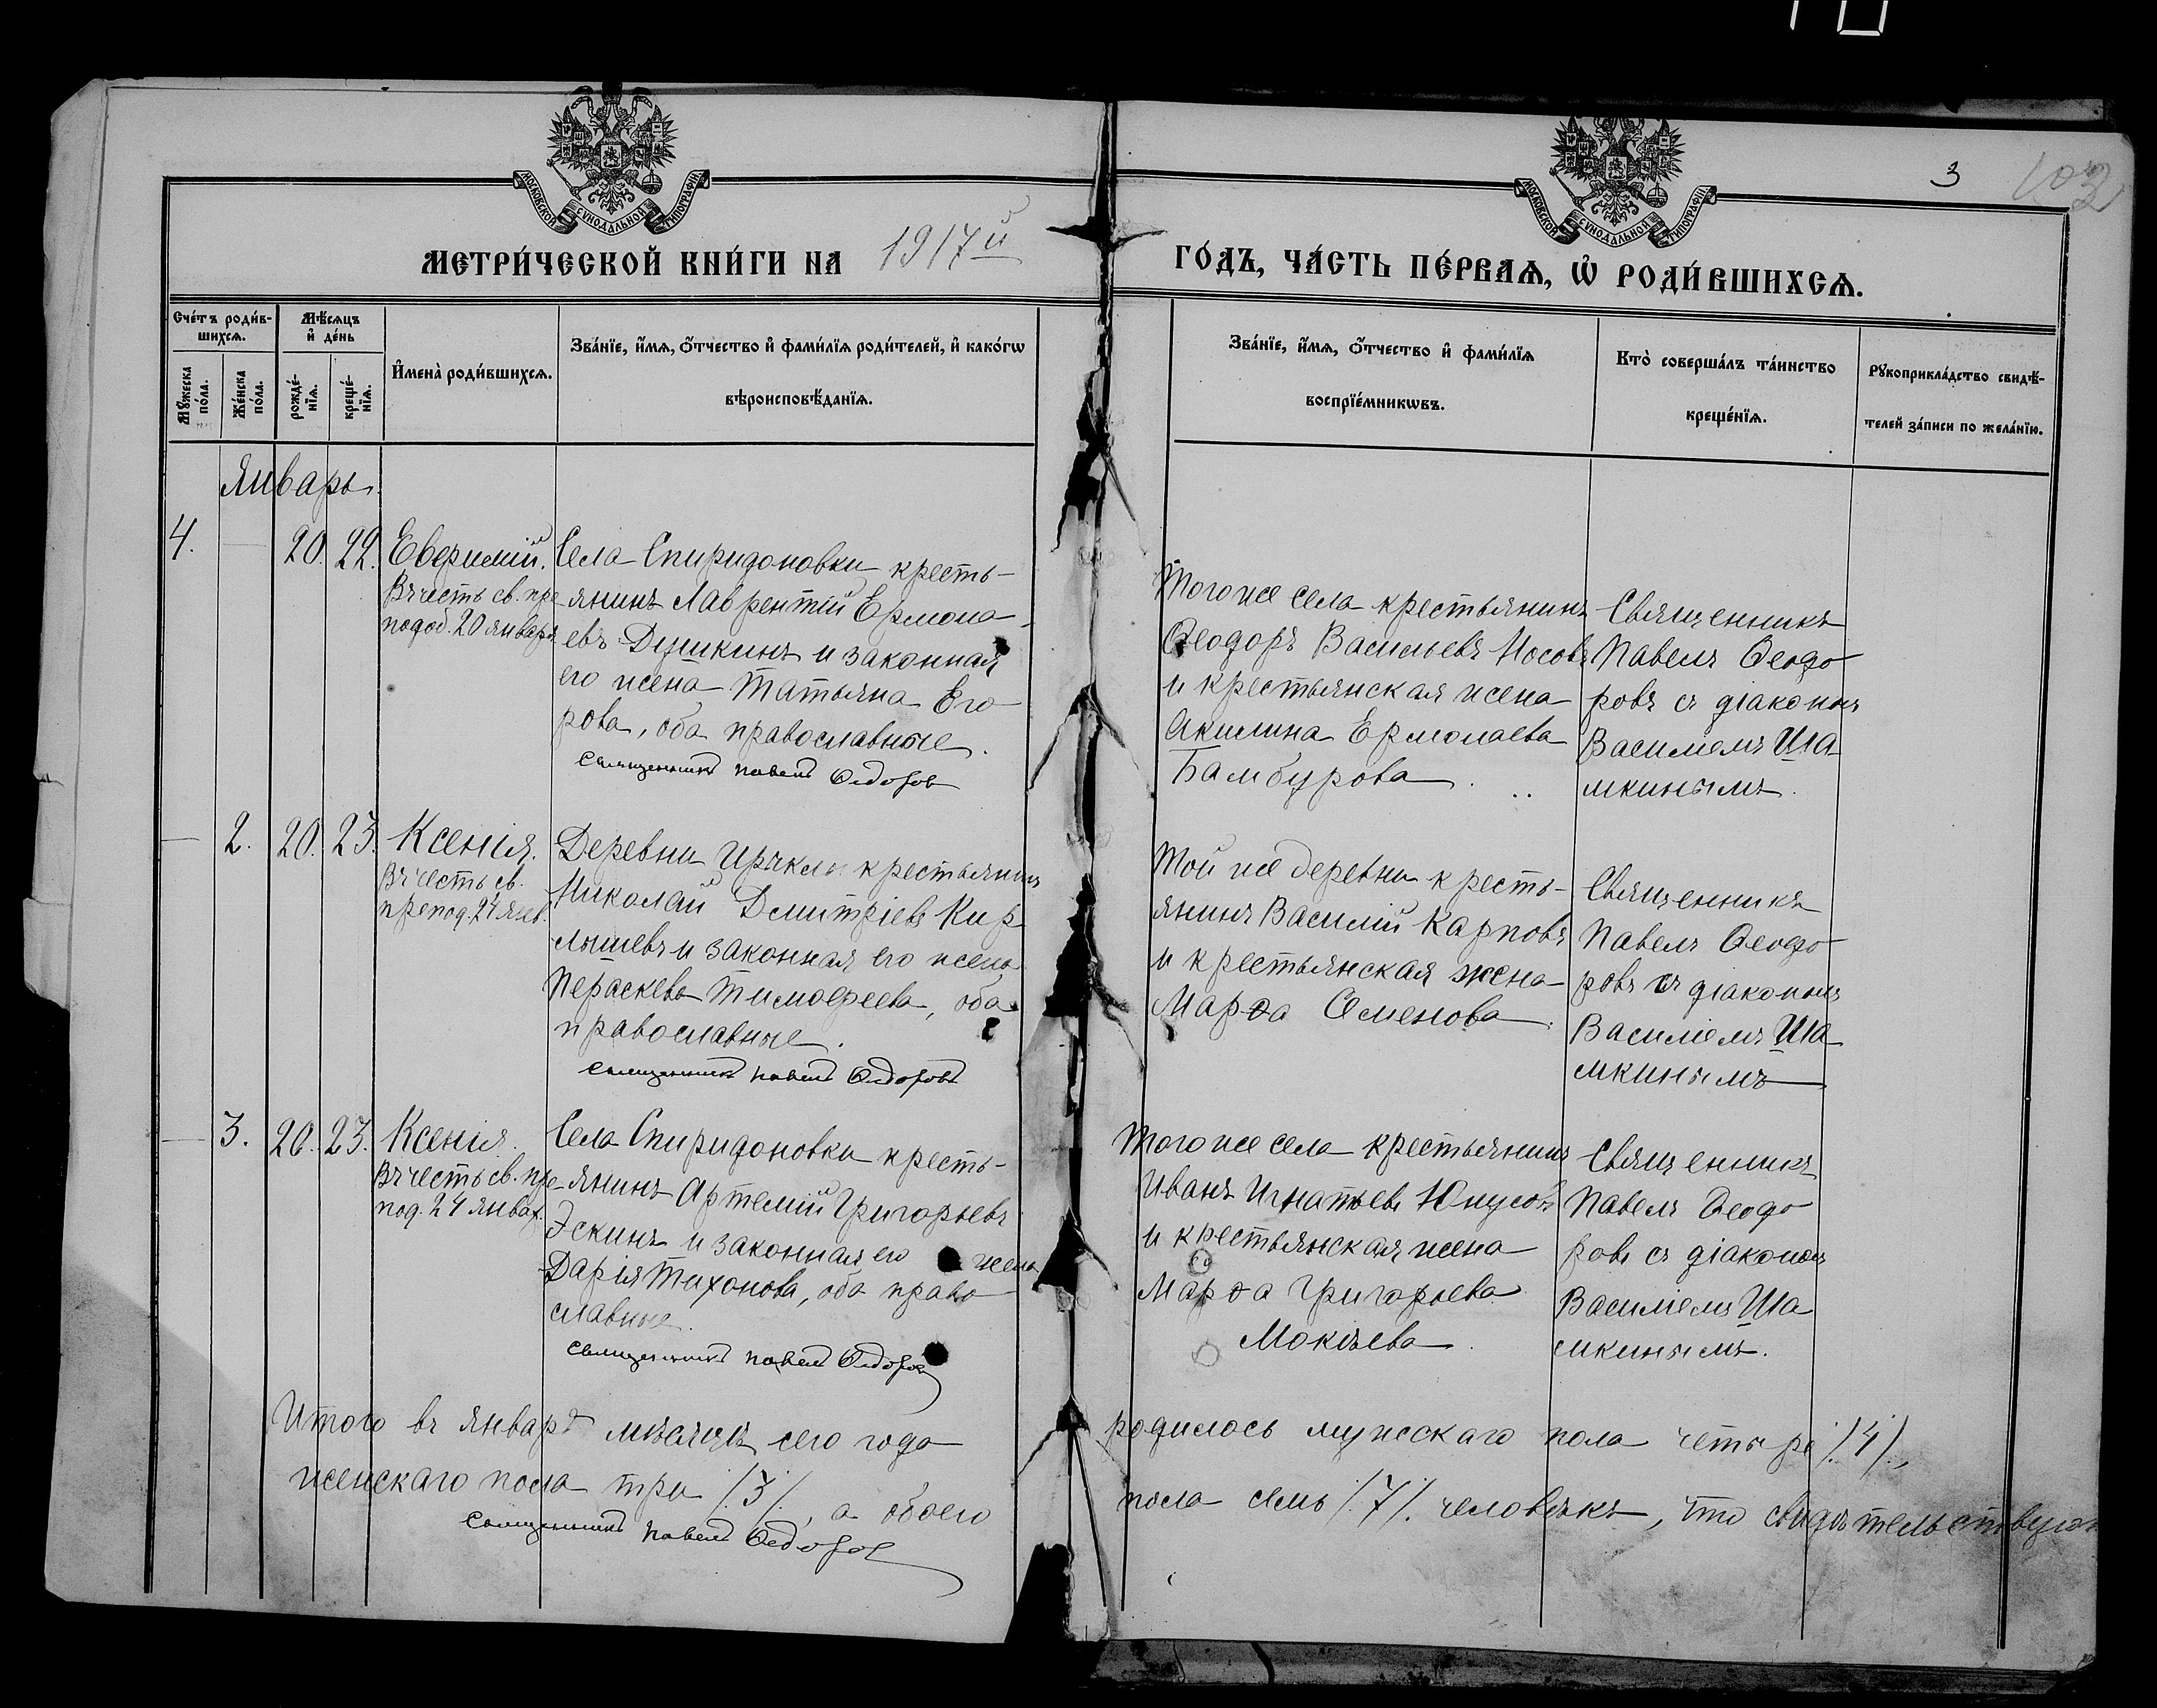 МОСКОВСКОЙ СУНОДАЛЬНОЙ ТИПОГРАФІИ
МОСКОВСКОЙ СУНОДАЛЬНОЙ ТИПОГРАФІИ
3
103
МЕТРИ́ЧЕСКОЙ КНИ́ГИ НА 1917й
ГО́ДЪ, ЧА́СТЬ ПЕ́РВАѦ, Ѡ҆ РОДИ́ВШИХСѦ.
Сче́тъ роди́в-
шихсѧ.
Мꙋ́жеска
по́ла.
Же́нска
по́ла.
Мѣ́сѧцъ
и҆ де́нь
рожде́-
нїѧ.
креще́-
нїѧ.
И҆мена̀ роди́вшихсѧ.
Зва́нїе, и҆́мѧ, ѻ҆́тчество и҆ фами́лїѧ роди́телей, и҆ како́гѡ
вѣроисповѣ́данїѧ.
Зва́нїе, и҆́мѧ, ѻ҆́тчество и҆ фами́лїѧ
воспрїе́мникѡвъ.
Кто̀ соверша́лъ та́инство
креще́нїѧ.
Рꙋкоприкла́дство свидѣ́-
телей за́писи по жела́нїю.
Январь.
4.
—
20.
22.
Евѳимій.
Въ честь св. пре
подоб. 20 января
Села Спиридоновки кресть-
янинъ Лаврентій Ермола-
евъ Душкинъ и законная
его жена Татьяна Его
рова, оба православные.
Священникъ Павелъ Ѳедоров
Того же села крестьянинъ
Ѳеодоръ Васильевъ Носовъ
и крестьянская жена
Акилина Ермолаева
Бамбурова.
Священникъ
Павелъ Ѳеодо
ровъ съ діаконом
Василіемъ Ша
мкинымъ.
—
2.
20.
23.
Ксенія.
Въ честь св.
препод. 24 янв.
Деревни крестьянинъ
Николай Дмитріевъ Кир
лышевъ и законная его жена
Пераскева Тимоѳеева, оба
православные.
Священникъ Павелъ Ѳедоровъ
Той же деревни кресть-
янинъ Василій Карповъ
и крестьянская жена
Марѳа Семенова.
Священникъ
Павелъ Ѳеодо
ровъ съ діакономъ
Василіемъ Ша
мкинымъ
—
3.
20.
23.
Ксенія.
Въ честь св. пре
под. 24 январ.
Села Спиридоновки кресть-
янинъ Артемій Григорьевъ
Эскинъ и законная его жена
Дарія Тихонова, оба право
славные.
Священникъ Павелъ Ѳедоров
Того же села крестьянинъ
Иванъ Игнатьевъ Юнусовъ
и крестьянская жена
Марѳа Григорьева
Мокѣева.
Священникъ
Павелъ Ѳеодо
ровъ съ діаконом
Василіемъ Ша
мкинымъ.
Итого въ январѣ мѣсяцѣ сего года родилось мужскаго пола четыре /.4/.,
женскаго пола три /.3/., а обоего пола семь /.7/. человѣкъ, что свидѣтельствую
Священникъ Павелъ Ѳедоров